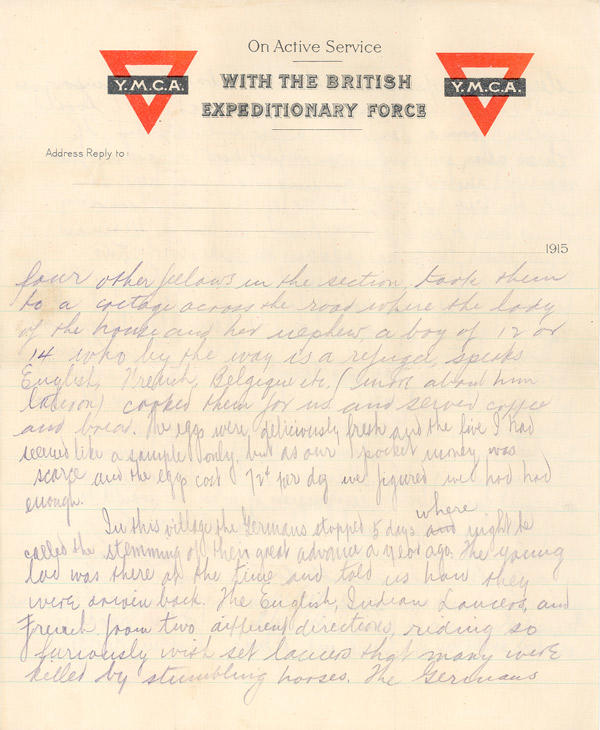 On Active Service
Y.M.C.A.
WITH THE BRITISH
EXPEDITIONARY FORCE
Y.M.C.A.
Address Reply to:
1915
four other fellows in the section, took them
to a cottage across the road where the lady
of the house and her nephew, a boy of 12 or
14 who by the way is a refugee, speaks
English, French, Belgique etc. (more about him
later on) cooked them for us and served coffee
and bread. The eggs were deliciously fresh and the five I had
seemed like a sample only, but as our pocket money was
scarce and the eggs cost per doz we figured we had had
enough.
In this village the Germans stopped 5 days and where might be
called the stemming of their great advance a year ago. The young
lad was there at the time and told us how they
were driven back. The English, Indian Lancers, and
French from two different directions, riding so
furiously with set lances that many were
killed by stumbling horses. The Germans